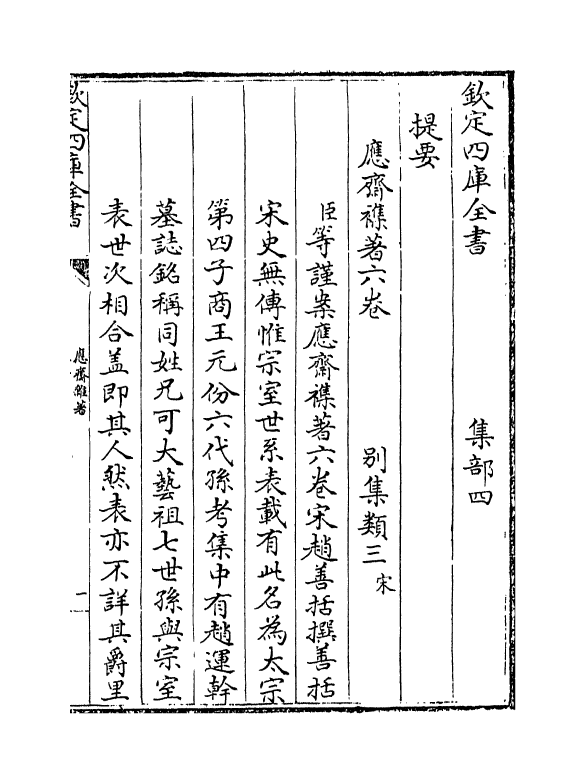 欽定四庫全書 集部四
提要
應齋襍著六卷 别集類三宋
臣等謹案應齋襍著六卷宋趙善括撰善括
宋史無傳惟宗室世系表載有此名為太宗
第四子商王元份六代孫考集中有趙運幹
墓誌銘稱同姓兄可大藝祖七世孫與宗室
表世次相合盖即其人然表亦不詳其爵里
欽定四庫全書
應齋雜著
一